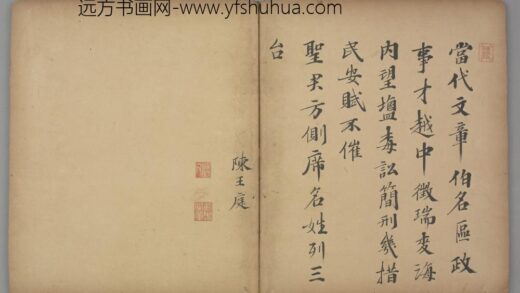 远方书画网--www.yfshuhua.com
當代文章伯名區政
事才越中徵瑞麥海
内望鹽毒訟簡刑幾措
民安賦不催
聖主方側席名姓列三
台
陳王庭